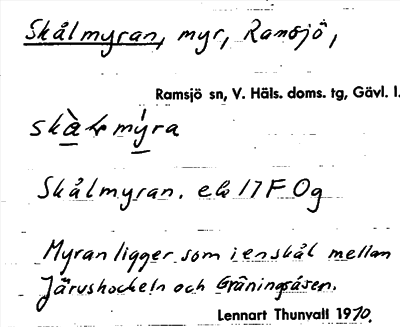 Skålmyran, myr, Ramsjö,
Ramsjö sn, V. Häls. doms. tg, Gävl. l.
Skålmyran. ek 17F 0g
Myran ligger som i en skål mellan
och Gråningsåsen.
Lennart Thunvall 1970.